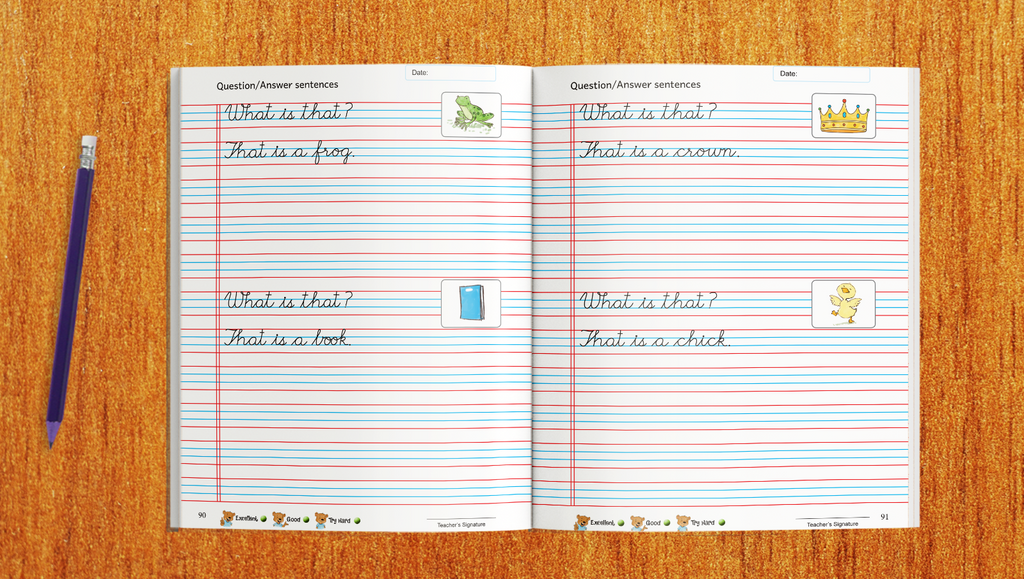 Date:
Question/Answer sentences
What is that?
That is a frog.
What is that?
That is a book.
90
Excellent
Good
Try Hard
Teacher's Signature
Date:
Question/Answer sentences
What is that?
That is a crown.
What is that?
That is a chick.
Excellent
Good
Try Hard
Teacher's Signature
91